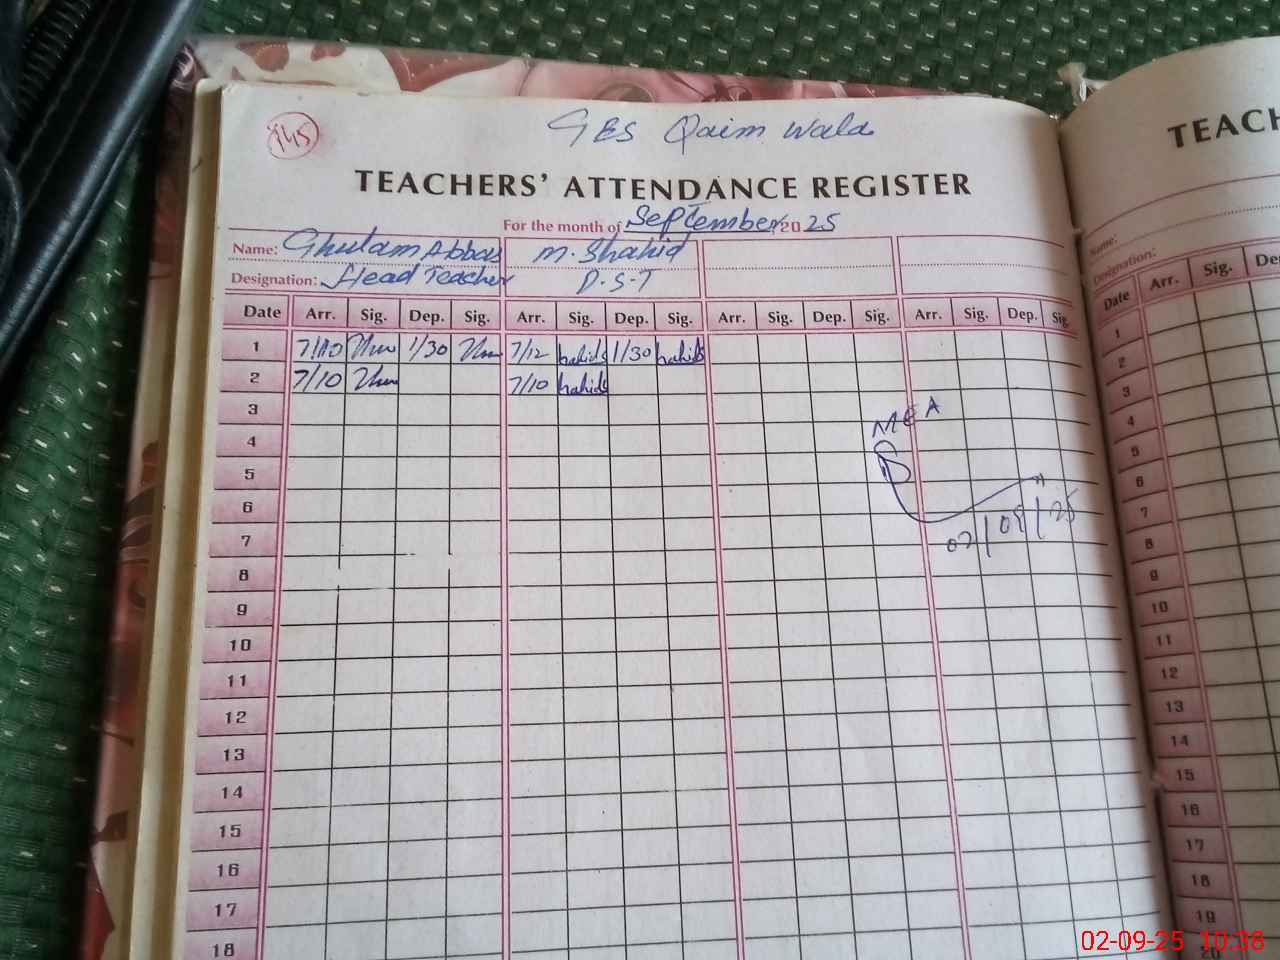 145
GES Qaim Wala
TEACHERS' ATTENDANCE REGISTER
For the month of September 2025
Name: Ghulam Abbas M. Shahid
Designation: Head Teacher P.S.T
Date Arr. Sig. Dep. Sig. Arr. Sig. Dep. Sig. Arr. Sig. Dep. Sig. Arr. Sig. Dep. Sig.
1 7/10 1/30 7/12 hahid 1/30 hahid
2 7/10 7/10 hahid
3
4
5
6
7
8
9
10
11
12
13
14
15
16
17
18
MEA
02/09/25
TEACH
Name:
Designation:
Date Arr. Sig. De
1
2
3
4
5
6
7
8
9
10
11
12
13
14
15
16
17
18
19
20
02-09-25 10:38